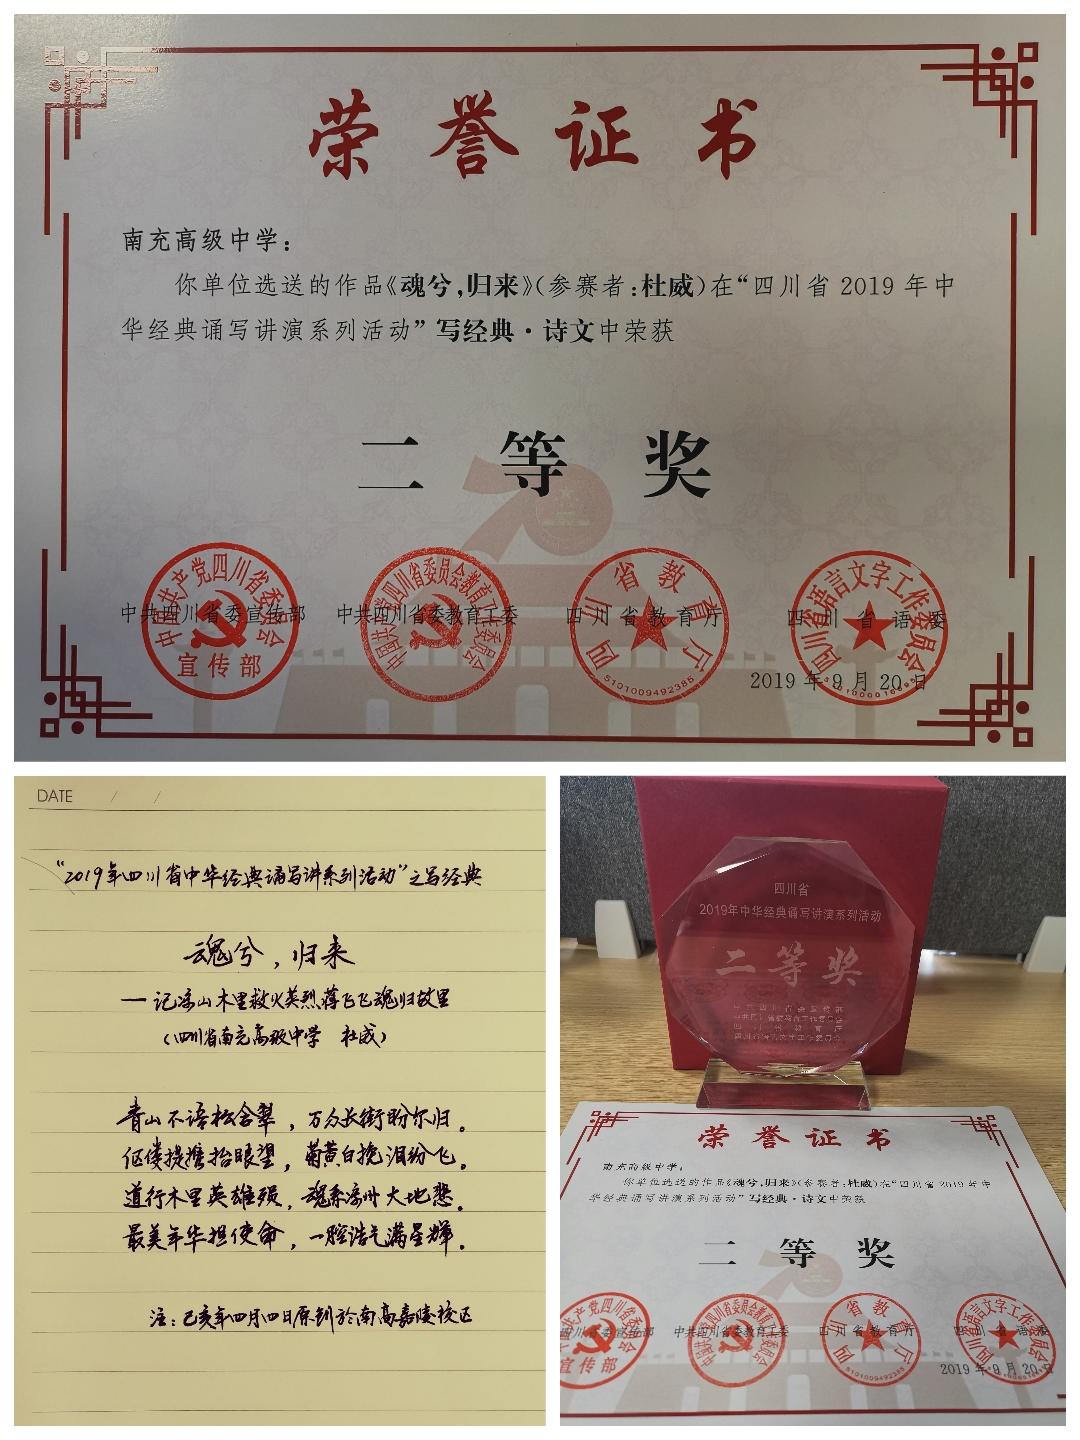 荣誉证书
南充高级中学：
你单位选送的作品《魂兮，归来》（参赛者：杜威）在“四川省 2019 年中
华经典诵写讲演系列活动”写经典·诗文中荣获
二等奖
中共四川省委宣传部 中共四川省委教育工委 四川省教育厅 四川省语委
中国共产党四川省委员会
宣传部
四川省教育厅
5101009492385
四川省语言文字工作委员会
2019 年 9 月 20 日
DATE / /
“2019年四川省中华经典诵写讲系列活动”之写经典
魂兮，归来
——记凉山木里救火英烈蒋飞飞魂归故里
（四川省南充高级中学 杜威）
青山不语松含翠，万众长街盼尔归。
伛偻提携抬眼望，菊黄白挽泪纷飞。
道行木里英雄殒，魂系凉州大地悲。
最美年华担使命，一腔浩气满星辉。
注：己亥年四月四日原创於南高嘉陵校区
四川省
2019年中华经典诵写讲演系列活动
二等奖
荣誉证书
南充高级中学：
你单位选送的作品《魂兮，归来》（参赛者：杜威）在“四川省 2019 年中
华经典诵写讲演系列活动”写经典·诗文中荣获
二等奖
中共四川省委教育工委 四川省教育厅 四川省语委
宣传部
四川省教育厅
5101009492385
2019 年 9 月 20 日